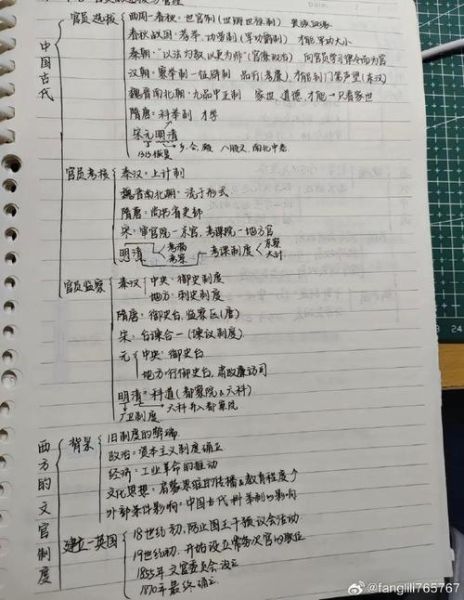 中国古代
官员选拔
西周-春秋·世官制(世卿世禄制) 贵族血缘
春秋战国·荐举、功赏制(军功爵制) 才能、军功大小
秦朝·"以法为教,以吏为师"(官僚政治) 向官员学习律令而为官
汉朝·察举制-征辟制 品行(孝廉) 才能到门第声望(东汉)
魏晋南北朝·九品中正制 家世、道德、才能→只看家世
隋唐:科举制 才学
宋元明清
1313恢复 乡、会、殿 八股文、南北中卷
官员考核
秦汉·上计制
魏晋南北朝·流于形式
隋唐:尚书省吏部
宋·审官院-京官、考课院-地方官
明清 考满 考察 考课制度 京察 大计
官员监察
秦汉 中央·御史制度
地方·刺史制度
隋唐:御史台,监察区(唐)
宋·台谏合一(谏议制度)
元 中央:御史台
地方·行御史台、肃政廉访司
明清·科道(都察院&六科)
厂卫制度 六科并入都察院
西方的文官制度
背景
旧制度的弊端
政治:资本主义制度确立
经济:工业革命的推动
文化思想:启蒙思想的传播&教育程度↑
外部条件影响:中国古代科举制的影响
建立-英国
18世纪初,防止国王干预议会活动
19世纪初,开始设立常务次官的职位
1855年文官委员会设立
1870年最终确立
@fanglill765767